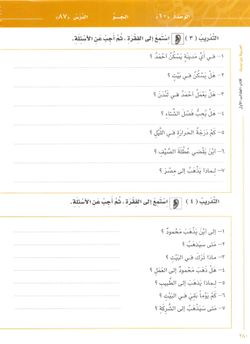 الوحدة «٢٠» الجو الدرس «٨٧»
التدريب ( ٣ ) استمع إلى الفقرة ، ثم أجب عن الأسئلة.
١- في أي مدينة يسكن أحمد ؟
٢- هل يسكن في بيت ؟
٣- هل يعمل أحمد في لندن ؟
٤- هل يحب فصل الشتاء ؟
٥- كم درجة الحرارة في الليل ؟
٦- أين يقضي عطلة الصيف ؟
٧- لماذا يذهب إلى مصر ؟
التدريب ( ٤ ) استمع إلى الفقرة ، ثم أجب عن الأسئلة.
١- إلى أين يذهب محمود ؟
٢- متى سيذهب ؟
٣- ماذا ترك في البيت ؟
٤- هل ذهب محمود إلى العمل ؟
٥- لماذا يذهب إلى الطبيب ؟
٦- كم يوماً بقي في البيت ؟
٧- متى سيذهب إلى الشركة ؟